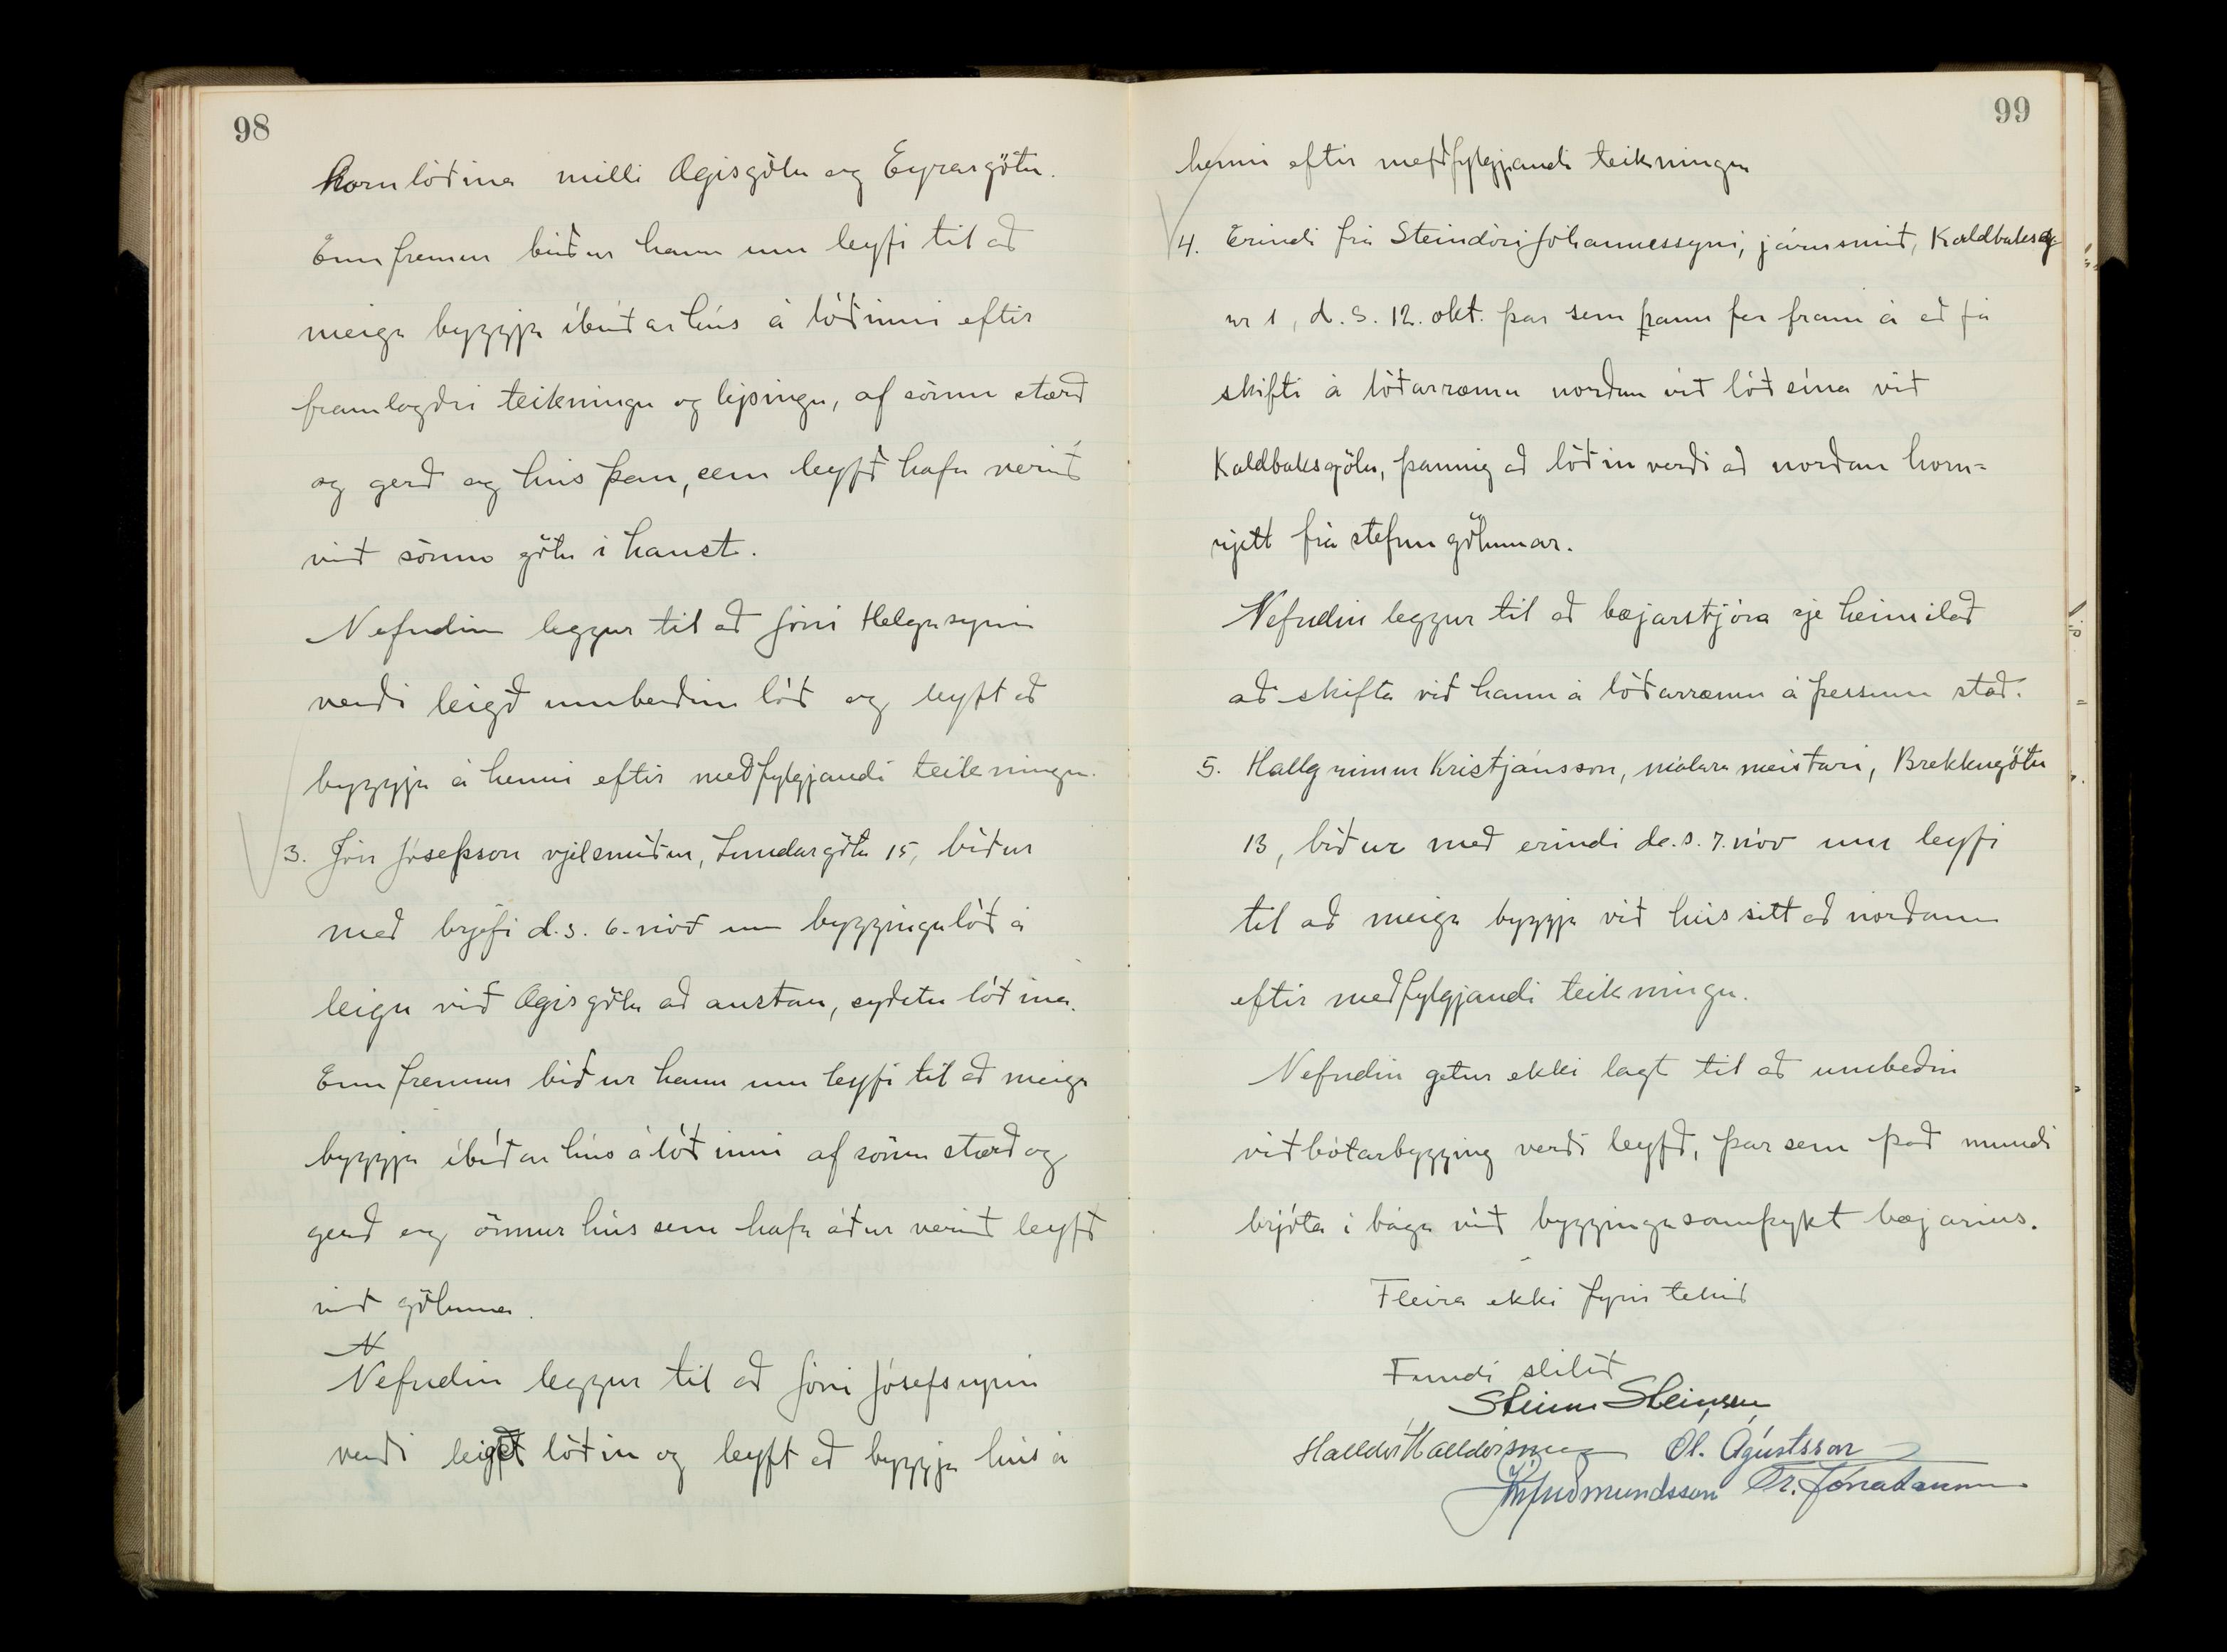 98
hornlóðina milli Ægisgötu og Eyrargötu.
Ennfremur biður hann um leyfi til að
meiga byggja íbúðarhús á lóðinni eftir
framlagðri teikningu og lýsingu, af sömu stærð
og gerð og hús þau, sem leyfð hafa verið
við sömu götu í haust.
Nefndin leggur til að Jóni Helgasyni
verði leigð umbeðin lóð og leyft að
byggja á henni eftir meðfylgjandi teikningu.
3. Jón Jósefsson vjelsmiður, Lundargötu 15, biður
með brjefi d.s. 6. nóv um byggingalóð á
leigu við Ægisgötu að austan, syðstu lóðina.
Ennfremur biður hann um leyfi til að meiga
byggja íbúðarhús á lóðinni af sömu stærð og
gerð og önnur hús sem hafa áður verið leyfð
við götuna.
N
Nefndin leggur til að Jóni Jósefssyni
verði leigð lóðin og leyft að byggja hús á
99
henni eftir meðfylgjandi teikningu
4. Erindi frá Steindóri Jóhannessyni, járnsmið, Kaldbaksg
nr 1, d.s. 12. okt. þar sem hann fer fram á að fá
skifti á lóðarræmu norðan við lóð sína við
Kaldbaksgötu, þannig að lóðin verði að norðan horn-
rjett frá stefnu götunnar.
Nefndin leggur til að bæjarstjóra sje heimilað
að skifta við hann á lóðarræmu á þessum stað.
5. Hallgrímur Kristjánsson, málarameistari, Brekkugötu
13, biður með erindi d.s. 7. nóv um leyfi
til að meiga byggja við hús sitt að norðan
eftir meðfylgjandi teikningu.
Nefndin getur ekki lagt til að umbeðin
viðbótarbygging verði leyfð, þar sem það mundi
brjóta í bága við byggingasamþykt bæjarins.
Fleira ekki fyrir tekið
Fundi slitið
Steinn Steinsen
Halldór Halldórsson Ól. Ágústsson
Guðmundsson Tr. Jónatansson